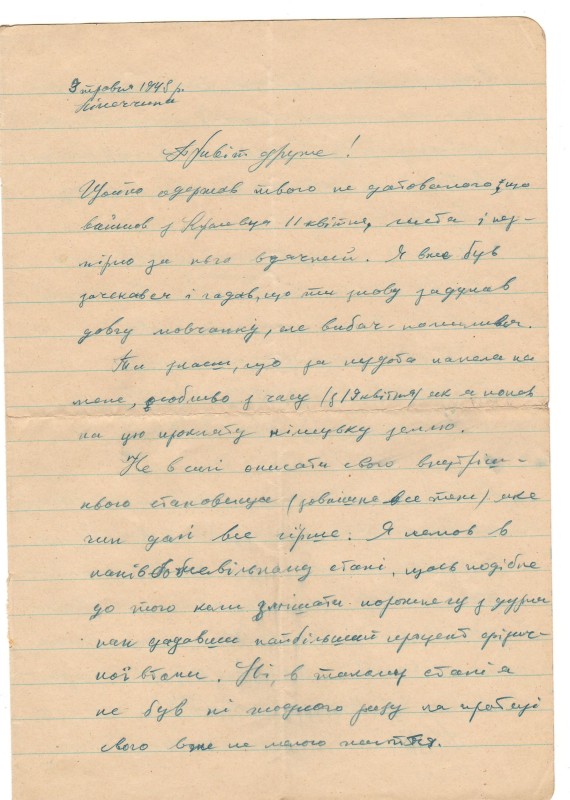 9 травня 1945 р.
Німеччина
Привіт друже!
Щойно одержав твого не датованого, що
вийшов з 11 квітня, листа і без-
мірно за нього вдячний. Я вже був
зачекавсь і гадав, що ти знову задумав
довгу мовчанку, але вибач - помиливсь.
Ти знаєш, що за нудота напала на
мене, особливо з часу (з 19 квітня) як я попав
на цю прокляту німецьку землю.
Не в силі описати свого внутріш-
нього становища (зовнішнє все теж) яке
чим далі все гірше. Я немов в
напівбожевільному стані, щось подібне
до того коли змішати порожнечу з
додавши найбільший процент фізич-
ної втоми. Ні, в такому стані я
не був ні жодного разу на протязі
свого вже не малого життя.